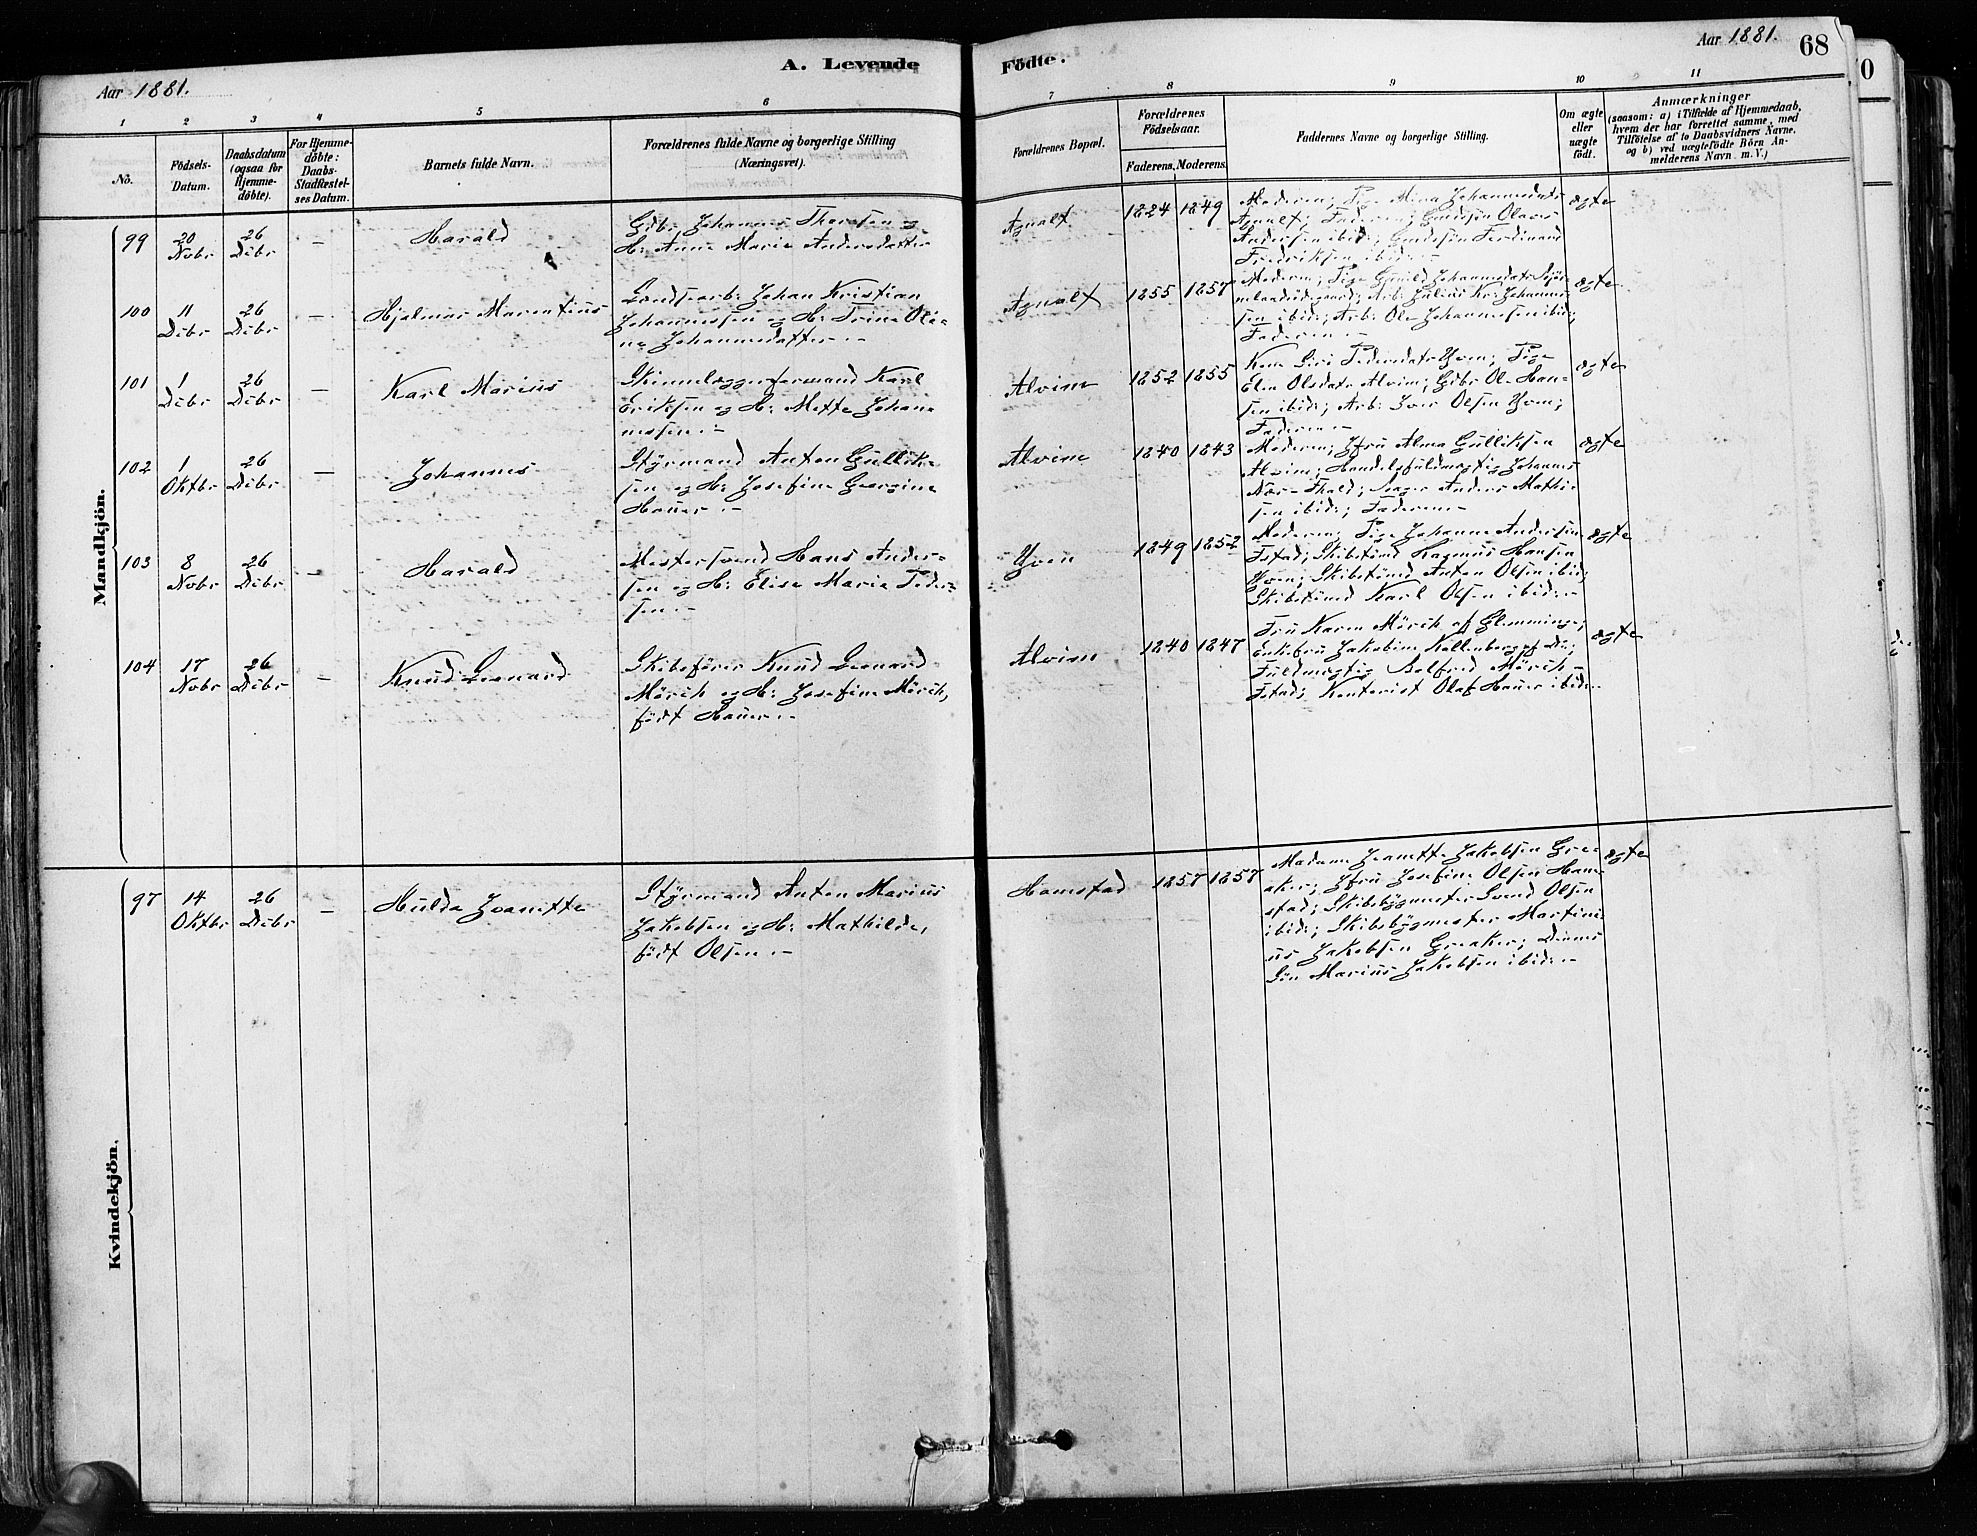 Aar 1881.
A. Levende
Fødte.
Aar 1881.
68
70
1
2
3
4
5
6
7
8
9
10
11
No.
Födsels-
Datum.
Daabsdatum
(ogsaa for
Hjemme-
døbte).
For Hjemme-
døbte:
Daabs-
Stadfæstel-
ses Datum.
Barnets fulde Navn.
Forældrenes fulde Navne og borgerlige Stilling
(Næringsvei).
Forældrenes Bopæl.
Forældrenes
Födselsaar.
Faderens. Moderens.
Faddernes Navne og borgerlige Stilling.
Om ægte
eller
uægte
födt.
Anmærkninger
(saasom: a) i Tilfælde af Hjemmedaab,
hvem der har forrettet samme, med
Tilföielse af to Daabsvidners Navne,
og b) ved uægtefödte Börn An-
melderens Navn m. V.)
Mandkjön.
99
20
Nobr
26
Debr
—
Harald
Gdbr Johannes Thoresen og
H: Anne Marie Andersdatter
Agnalt
1824 1849
Moderen; Pige Mina Johannesdatr
Agnalt; Faderen; Gaardsøn Olaves
Andersen ibid:; Gaardsøn Ferdinand
Fredriksen ibid:.—
ægte
100
11
Debr
26
Debr
—
Hjalmar Marentius
Landsarb: Johan Kristian
Johannesen og H: Trine Oli-
ne Johannesdatter.—
Agnalt
1855 1857
Moderen; Pige Gunild Johannesdatr
Arb: Julius Kr: Johannes-
sen ibid:; Arb: Ole Johannesen ibid:;
Faderen.—
ægte
101
1
Debr
26
Debr
—
Karl Marius
Skinnelæggerformand Karl
Eriksen og H: Mette Johan-
nessen.—
Alvim
1852 1855
Kone Siri Pedersdatr Yven; Pige
Elen Olsdatr Alvim; Gdbr Ole Han-
sen ibid:; Arb: Iver Olsen Yven;
Faderen.—
ægte
102
1
Oktbr
26
Debr
—
Johannes
Styrmand Anton Gullik-
sen og H: Josefine Georgine
Hauer.—
Alvim
1840 1843
Moderen; Jfru Alma Gulliksen
Alvim; Handelsfuldmægtig Johannes
Mathi-
sen ibid:; Faderen.—
ægte
103
8
Nobr
26
Debr
—
Harald
Mestersvend Hans Ander-
sen og H: Elise Marie Peder-
sen.—
Yven
1849 1852
Moderen; Pige Johanne Andersen
Fstad; Skibstømd Rasmus Hansen
Yven; Skibstømd Anton Olsen ibid:;
Skibstømd Karl Olsen ibid:.—
ægte
104
17
Nobr
26
Debr
—
Knud Leonard
Skibsfører Knud Leonard
Mörch og H: Josefine Mörch,
født Hauer.—
Alvim
1840 1847
Fru Karen Mörch af Glemminge;
Enkefru Jakobine Kallenberg af Do;
Fuldmægtig Bolfred Mörch
Fstad; Kontorist Olaf Hauer ibid:.—
ægte
Kvindekjön.
97
14
Oktbr
26
Debr
—
Hulda Jeanette
Styrmand Anton Marius
Jakobsen og H: Mathilde,
født Olsen.—
Hanestad
1857 1857
Madame Jeanette Jakobsen Gre-
aker; Jfru Josefine Olsen Hane-
stad; Skibsbygmester Svend Olsen
ibid:; Skibsbygmester Martini-
us Jakobsen Greaker; Dennes
Søn Marius Jakobsen ibid:.—
ægte